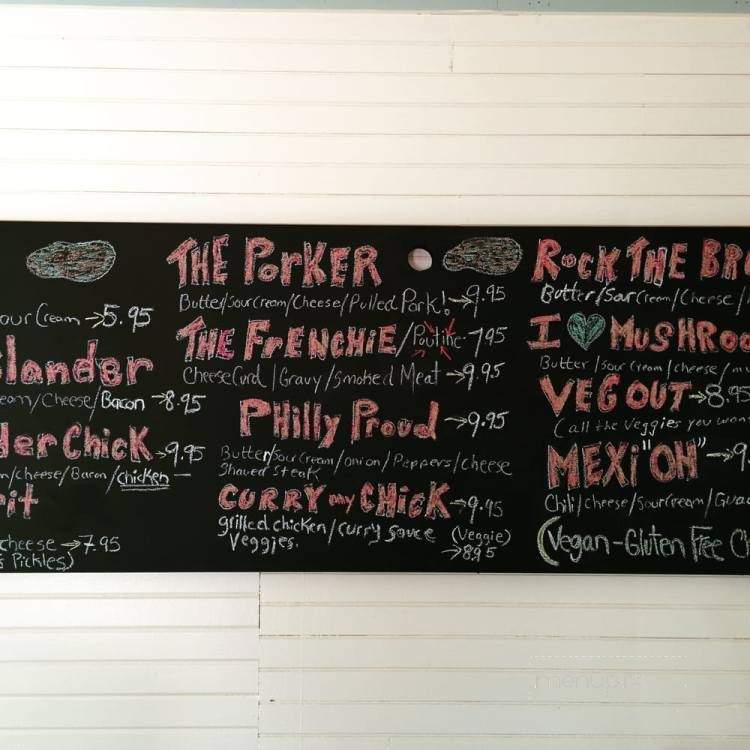 our Cream → 5.95
lander
eam/Cheese/Bacon → 8.95
der Chick → 9.95
/cheese/Bacon/chicken
it
cheese → 7.95
Pickles)
THE PORKER
Butter/Sour Cream/Cheese/Pulled Pork! → 9.95
THE FrENCHiE/Poutine 7.95
Cheese Curd/Gravy/Smoked Meat → 9.95
PHilly Proud → 9.95
Butter/Sour Cream/onion/Peppers/cheese
Shaved Steak
CURRY my CHiCK → 9.95
grilled chicken/curry sauce (Veggie)
Veggies. → 8.95
ROCK THE BRO
Butter/Sour Cream/Cheese/
I ♥ MUSHROO
Butter/sour cream/cheese/mu
VEG OUT → 8.95
(all the veggies you want
MEXi "OH" → 9.
Chili/cheese/sour cream/Gua
(Vegan-Gluten Free Ch
menupix